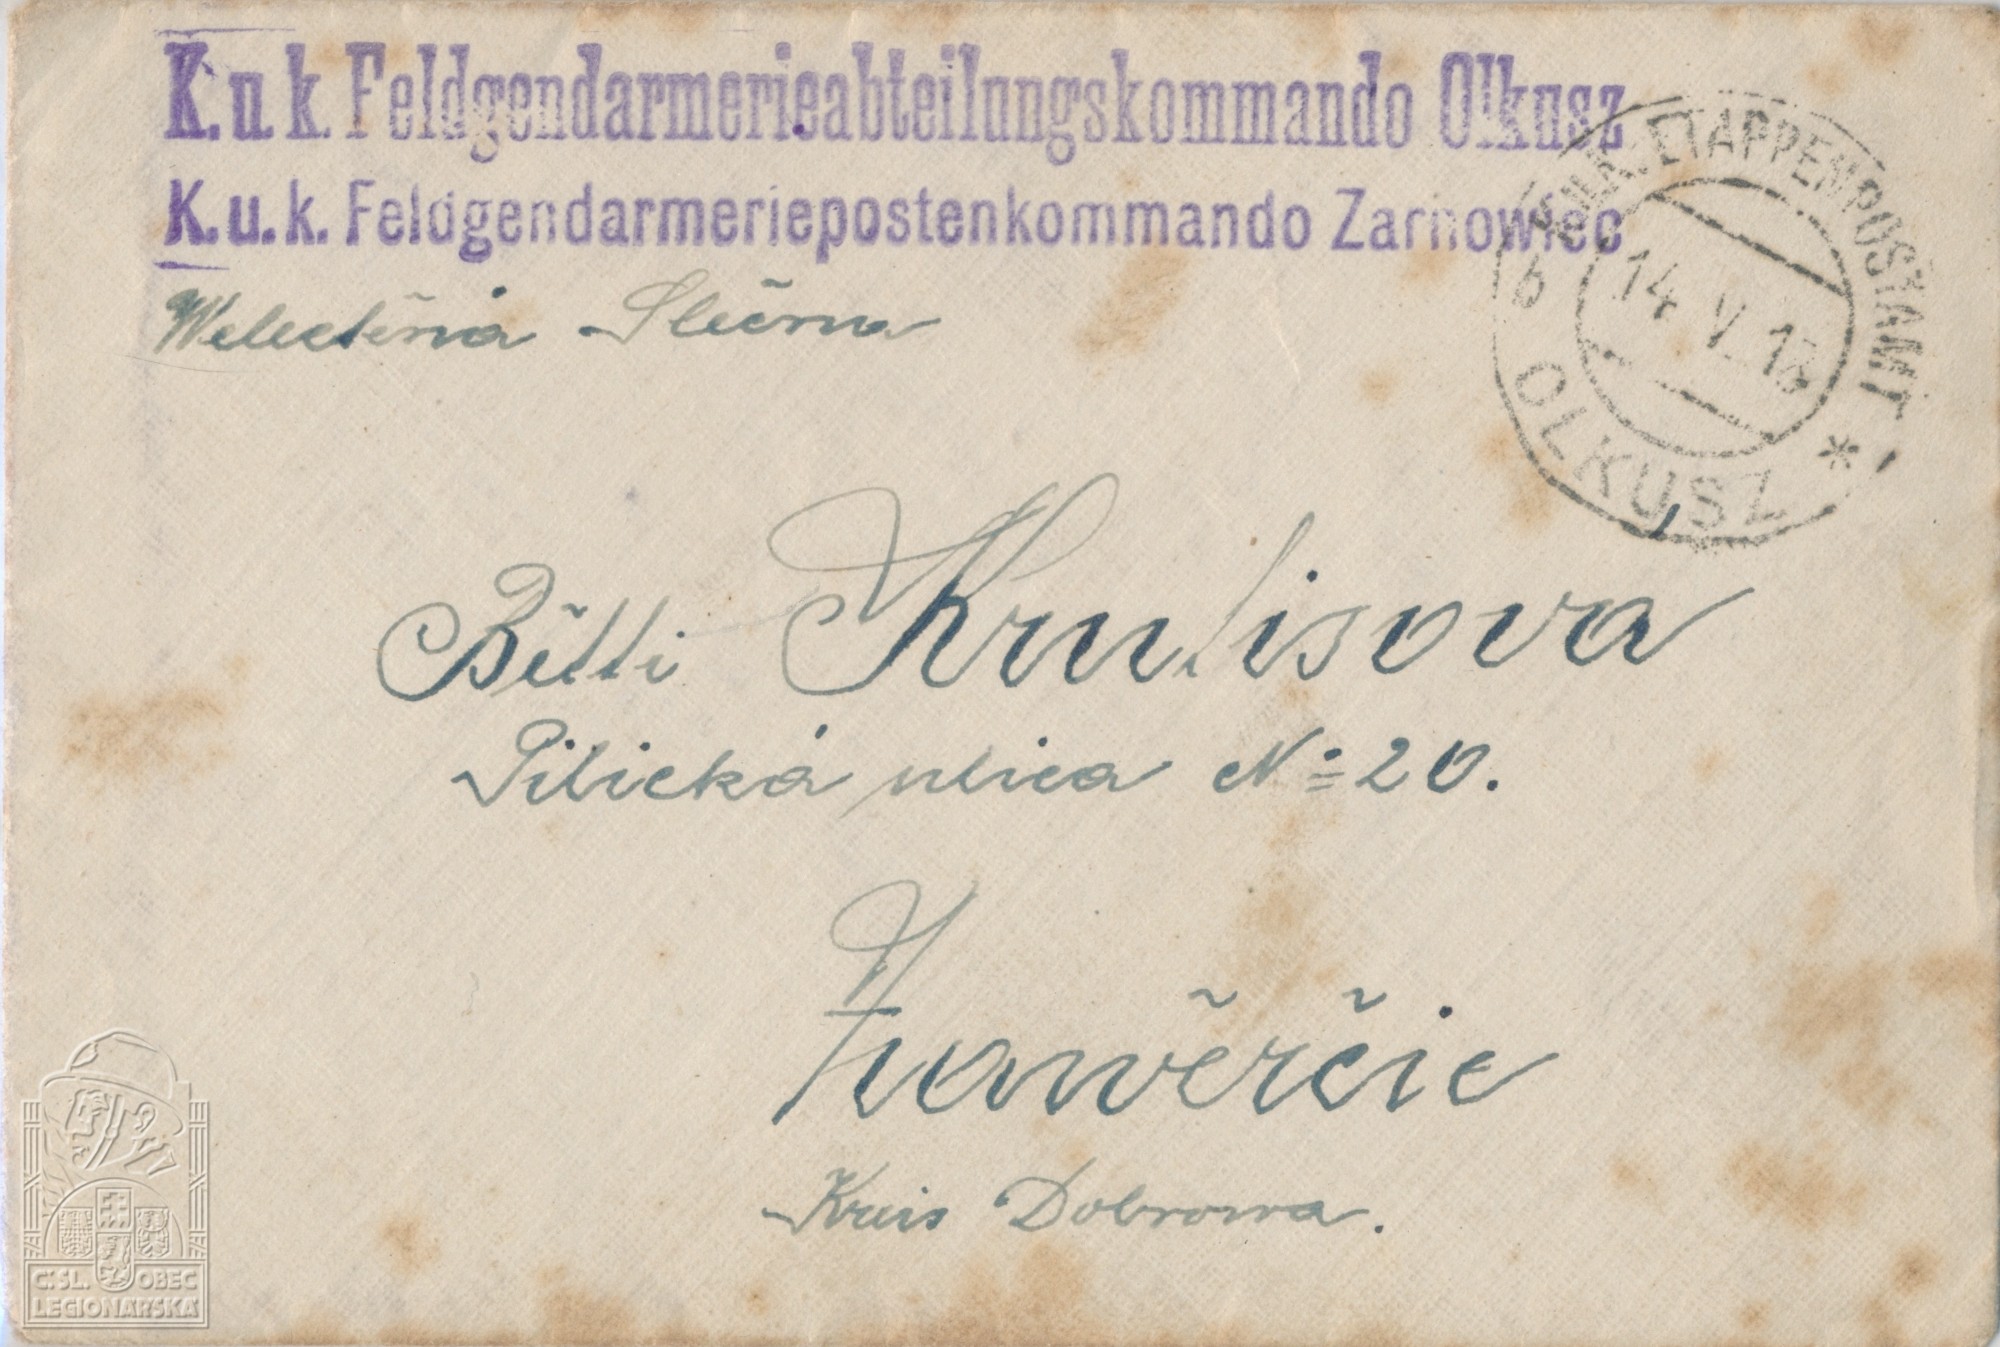 K.u.k. Feldgendarmerieabteilungskommando Olkusz
K.u.k. Feldgendarmeriepostenkommando Zarnowiec
K.U.K. ETAPPENPOSTAMT
b
14 V. 18
OLKUSZ *
Slečna
Bětti Krutisova
Pilická ulica No 20.
Zvawěrčie
Kreis Dobrowa.
Č.SL. OBEC
LEGIONÁŘSKÁ